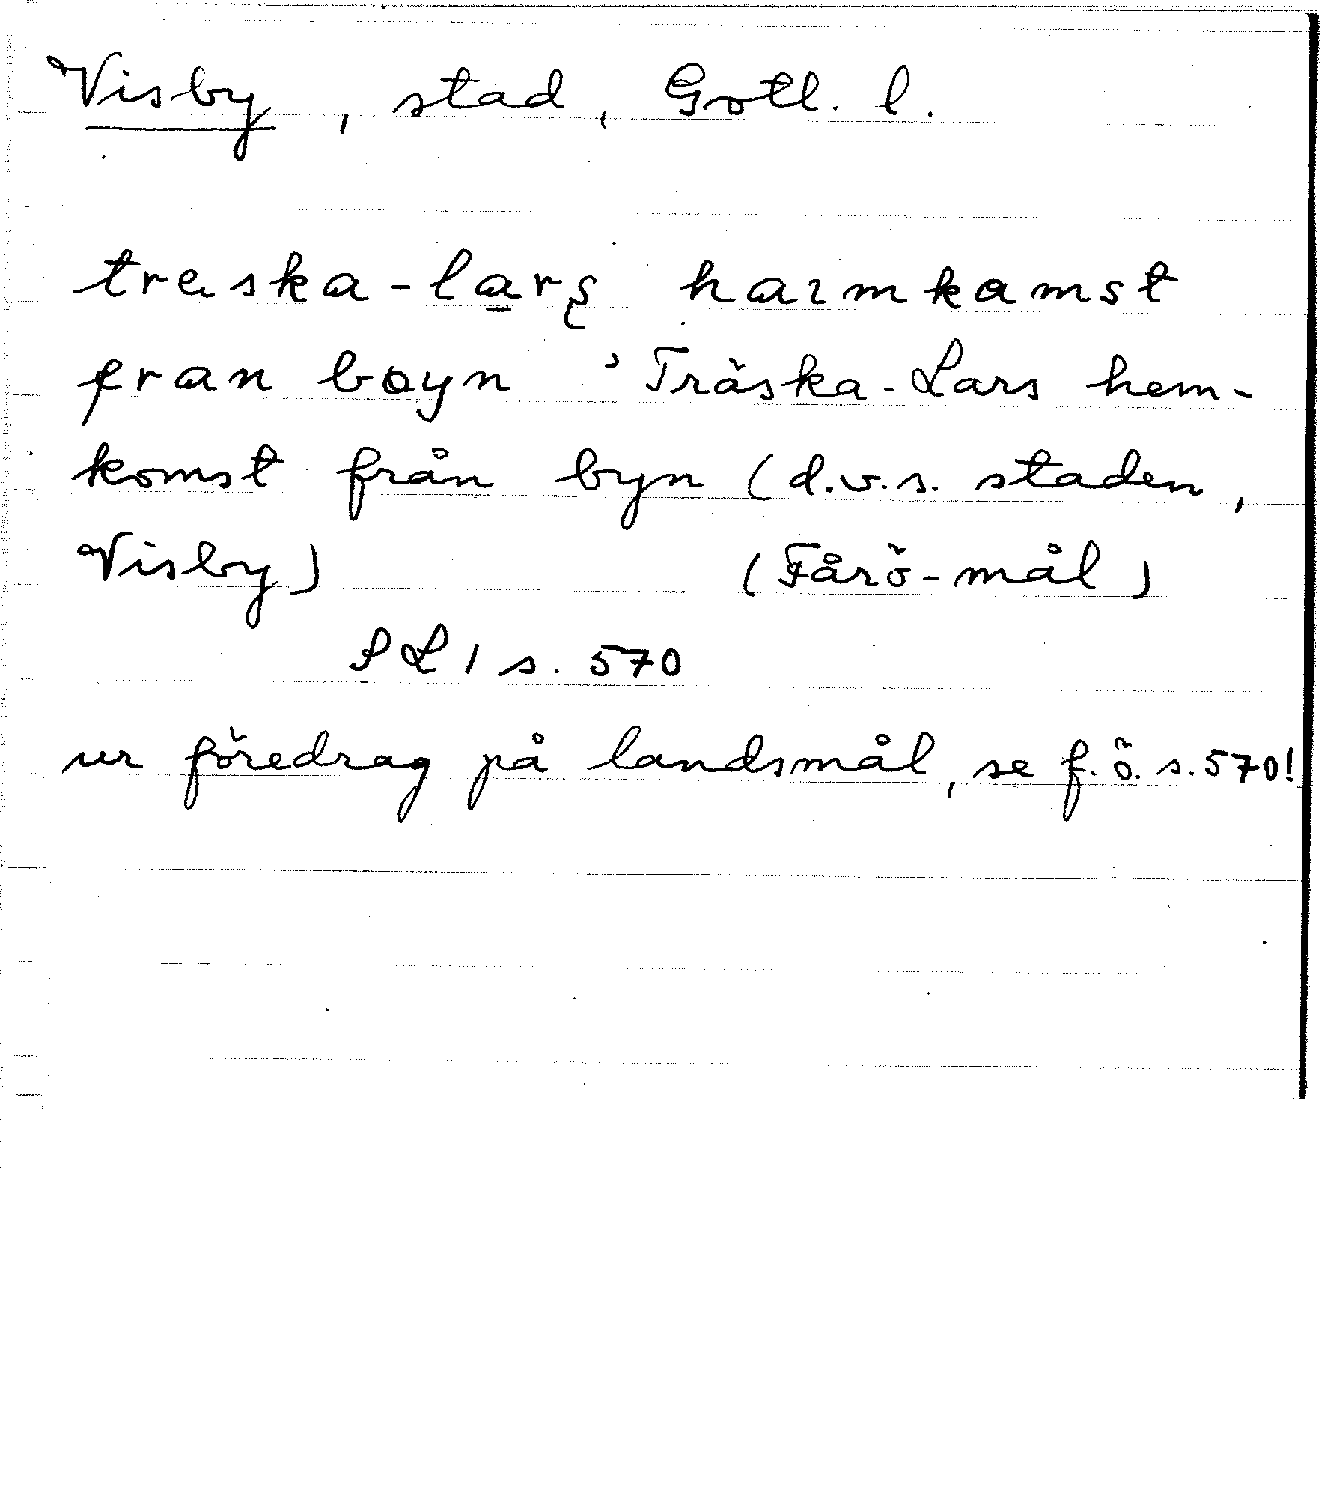 Visby, stad, Gotl. l.
träska-lars haimkamst
fran boyn 'Träska-Lars hem-
komst från byn (d.v.s. staden,
Visby) (Fårö-mål)
PL 1 s. 570
ur föredrag på landsmål, se f.ö. s. 570!